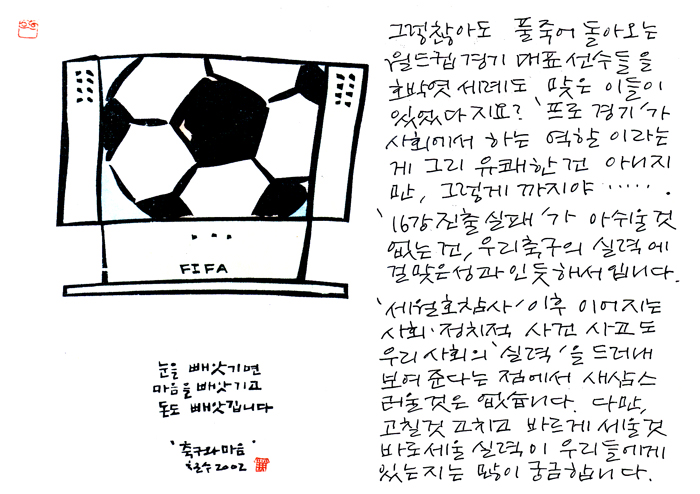 FIFA
눈을 빼앗기면
마음을 빼앗기고
돈도 빼앗깁니다
'축구와 마음'
철수 2002
그렇찮아도 풀죽어 돌아오는
월드컵경기 대표선수들을
호박엿 세례도 맞은 이들이
있었다지요? '프로 경기'가
사회에서 하는 역할이라는
게 그리 유쾌한건 아니지
만, 그렇게 까지야 ‥‥‥.
'16강진출실패'가 아쉬울것
없는건, 우리축구의 실력에
걸맞은성과인듯해서 입니다.
'세월호참사' 이후 이어지는
사회·정치적 사건 사고도
우리사회의 '실력'을 드러내
보여준다는 점에서 새삼스
러울것은 없습니다. 다만,
고칠것 고치고 바르게 세울것
바로세울 실력이 우리들에게
있는지는 많이 궁금합니다.